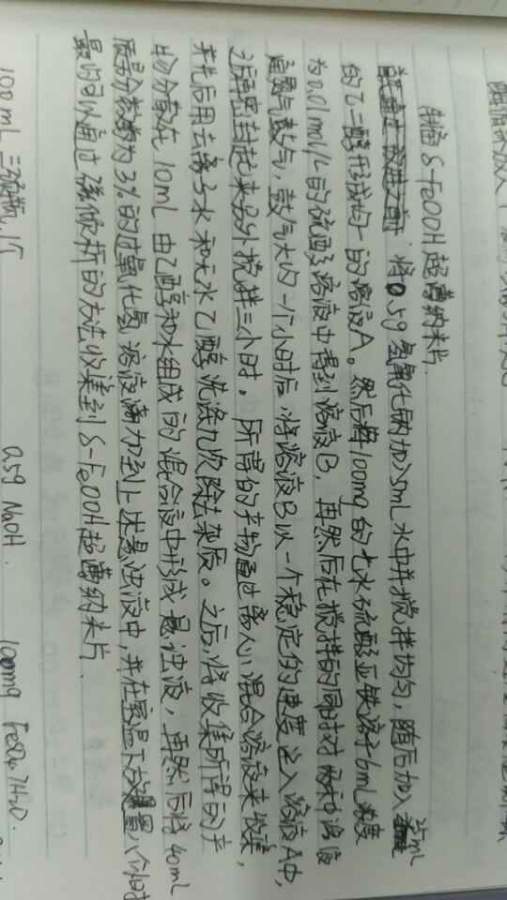 制备 δ-FeOOH 超薄纳米片.
将0.5g氢氧化钠加入5mL水中并搅拌均匀, 随后加入25mL
的乙二醇形成均一的溶液A。然后将100mg的七水硫酸亚铁溶于6mL浓度
为0.01mol/L的硫酸溶液中得到溶液B, 再然后在搅拌的同时对两种溶液
通氮气鼓气, 鼓气大约一个小时后将溶液B以一个稳定的速度注入溶液A中,
之后密封起来另外搅拌三小时。所得的产物通过离心混合溶液来收集,
并先后用去离子水和无水乙醇洗涤几次除去杂质。之后, 将收集所得的产
物分散在10mL由乙醇和水组成的混合液中形成悬浊液, 再然后将40mL
质量分数为3%的过氧化氢溶液滴加到上述悬浊液中, 并在室温下放置1个小时
最终可以通过磁倾析的方法收集到δ-FeOOH超薄纳米片.
100mL 三颈瓶, 1个 0.5g NaOH. 100mg FeSO4·7H2O.